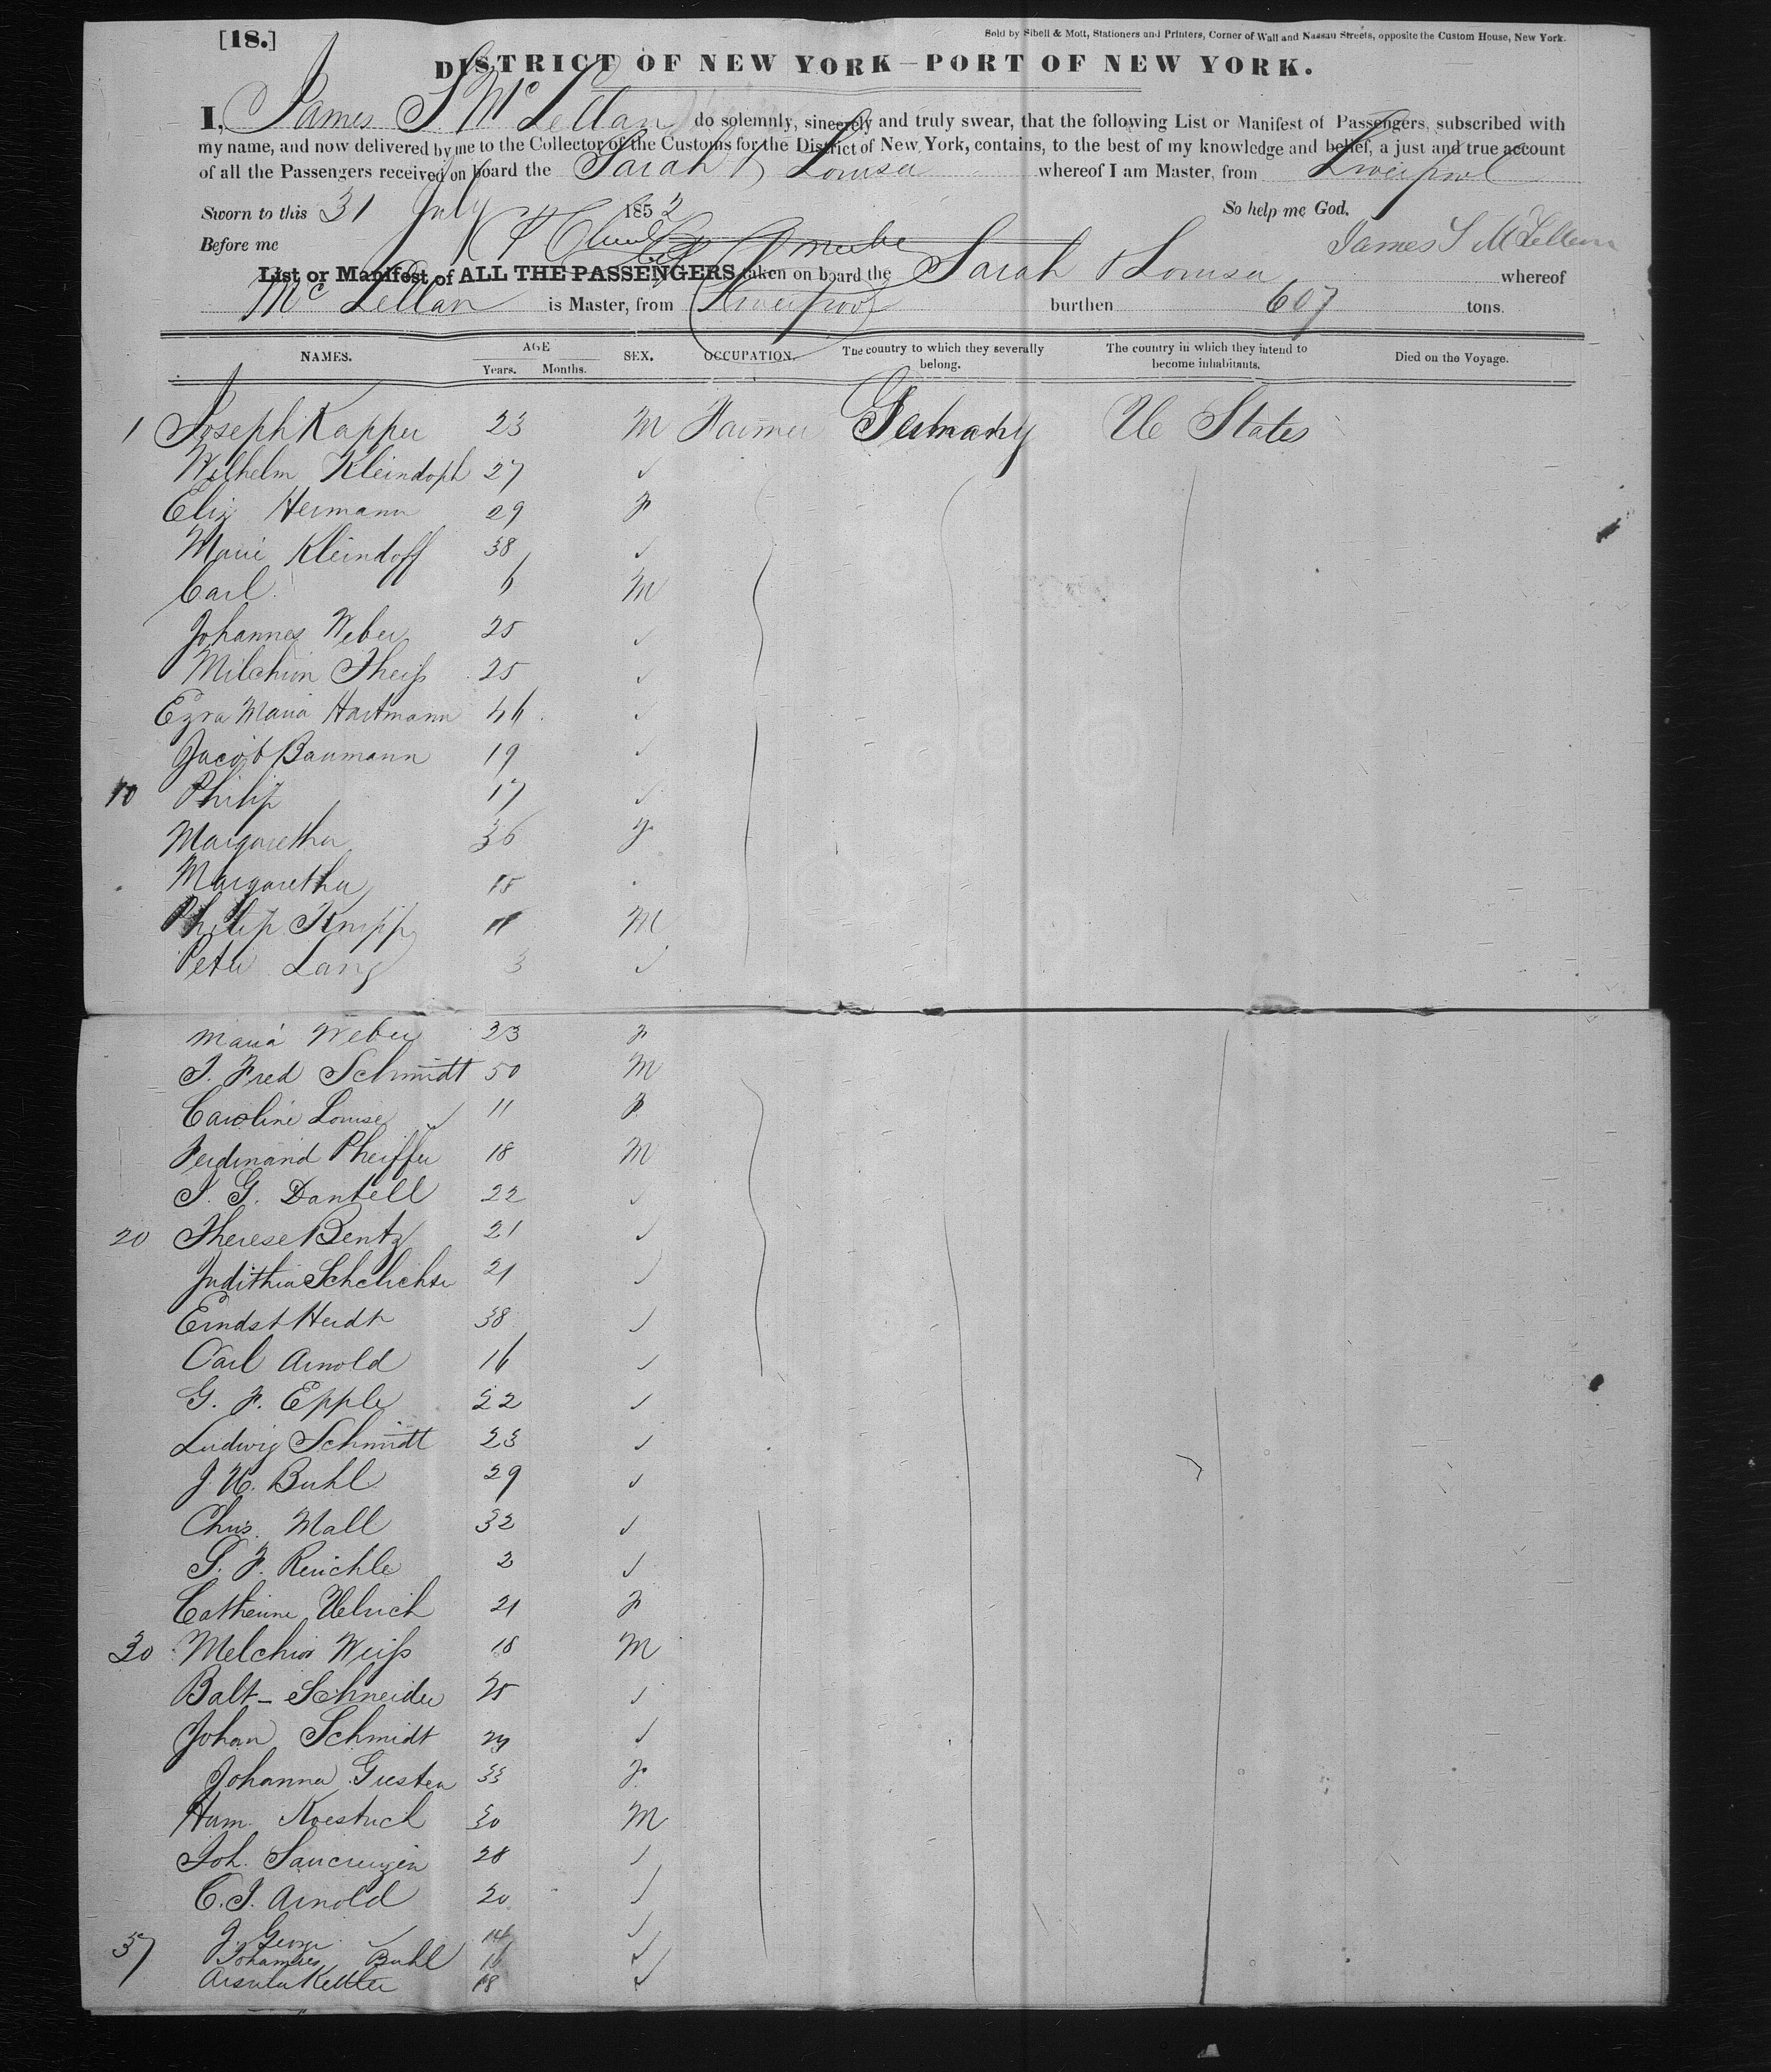 [18.]
Sold by Sibell & Mott, Stationers and Printers, Corner of Wall and Nassau Streets, opposite the Custom House, New York.
DISTRICT OF NEW YORK—PORT OF NEW YORK.
I, James S. McLellan do solemnly, sincerely and truly swear, that the following List or Manifest of Passengers, subscribed with
my name, and now delivered by me to the Collector of the Customs for the District of New York, contains, to the best of my knowledge and belief, a just and true account
of all the Passengers received on board the Sarah & Louisa whereof I am Master, from Liverpool
Sworn to this 31 July 1852 So help me God.
Before me James S McLellan
List or Manifest of ALL THE PASSENGERS taken on board the Sarah & Louisa whereof
McLellan is Master, from Liverpool burthen 607 tons.
NAMES. AGE SEX. OCCUPATION. The country to which they severally belong. The country in which they intend to become inhabitants. Died on the Voyage.
Years. Months.
1 Joseph Kapper 23 M Farmer Germany U States
Wilhelm Kleindoph 27 ✓
Eliz Hermann 29 F
Marie Kleindoff 38 ✓
Carl 6 M
Johannes Weber 25 ✓
Milchion Theiss 25 ✓
Ezra Maria Hartmann 46 ✓
Jacob Baumann 19 ✓
10 Philip 17 ✓
Margaretha 36 F
Margaretha
Philip Knipp 11 M
Peter Lang 3 ✓
Maria Weber 23 F
J. Fred Schmidt 50 M
Caroline Louise ✓ 11 F
Ferdinand Pheiffer 18 M
J. G. Dantell 22 ✓
20 Therese Bentz 21 ✓
Judithia Schelichte 21 ✓
Erndst Heidt 38 ✓
Carl Arnold 16 ✓
G. F. Epple 22 ✓
Ludwig Schmidt 23 ✓
J. U. Buhl 29 ✓
Chris. Mall 32 ✓
G. F. Reuchle 2 ✓
Catherine Uelrich 21 F
30 Melchior Weiss 18 M
Balt- Schneider 25 ✓
Johan Schmidt 29 ✓
Johanna Gusten 33 F
Ham. Koestrich 30 M
Joh. 28 ✓
C. J. Arnold 20 ✓
J. George ✓ 14 ✓
37 Johannes Buhl 16 ✓
Arsula Kettler 18 ✓